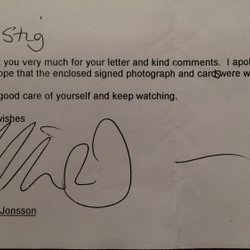 Stig
you very much for your letter and kind comments. I apol
ope that the enclosed signed photograph and cards were w
good care of yourself and keep watching.
wishes
Jonsson